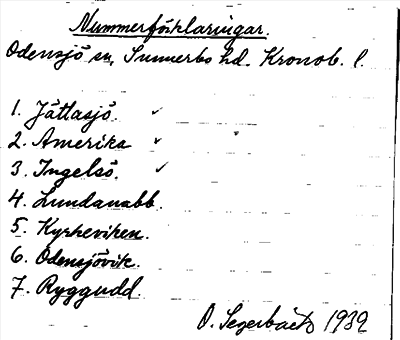 Nummerförklaringar.
Odensjö sn, Sunnerbo hd. Kronob. l.
1. Jättasjö. ✓
2. Amerika ✓
3. Ingelsö. ✓
4. Lundanabb.
5. Kyrkeviken.
6. Odensjövik.
7. Ryggudd.
O. Segerbäck 1939